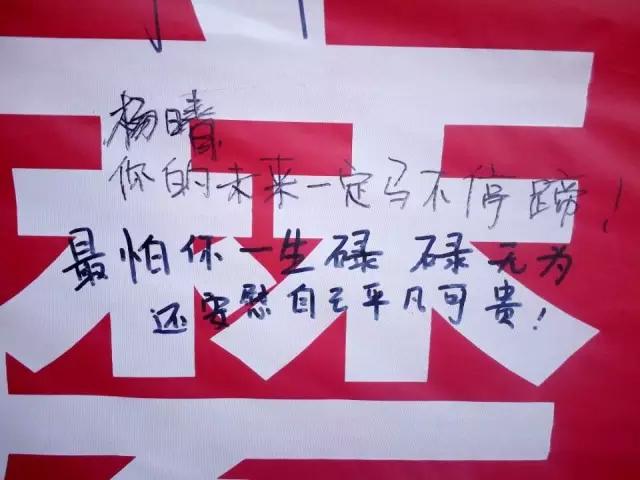 杨晴
你的未来一定马不停蹄！
最怕你一生碌碌无为
还安慰自己平凡可贵！